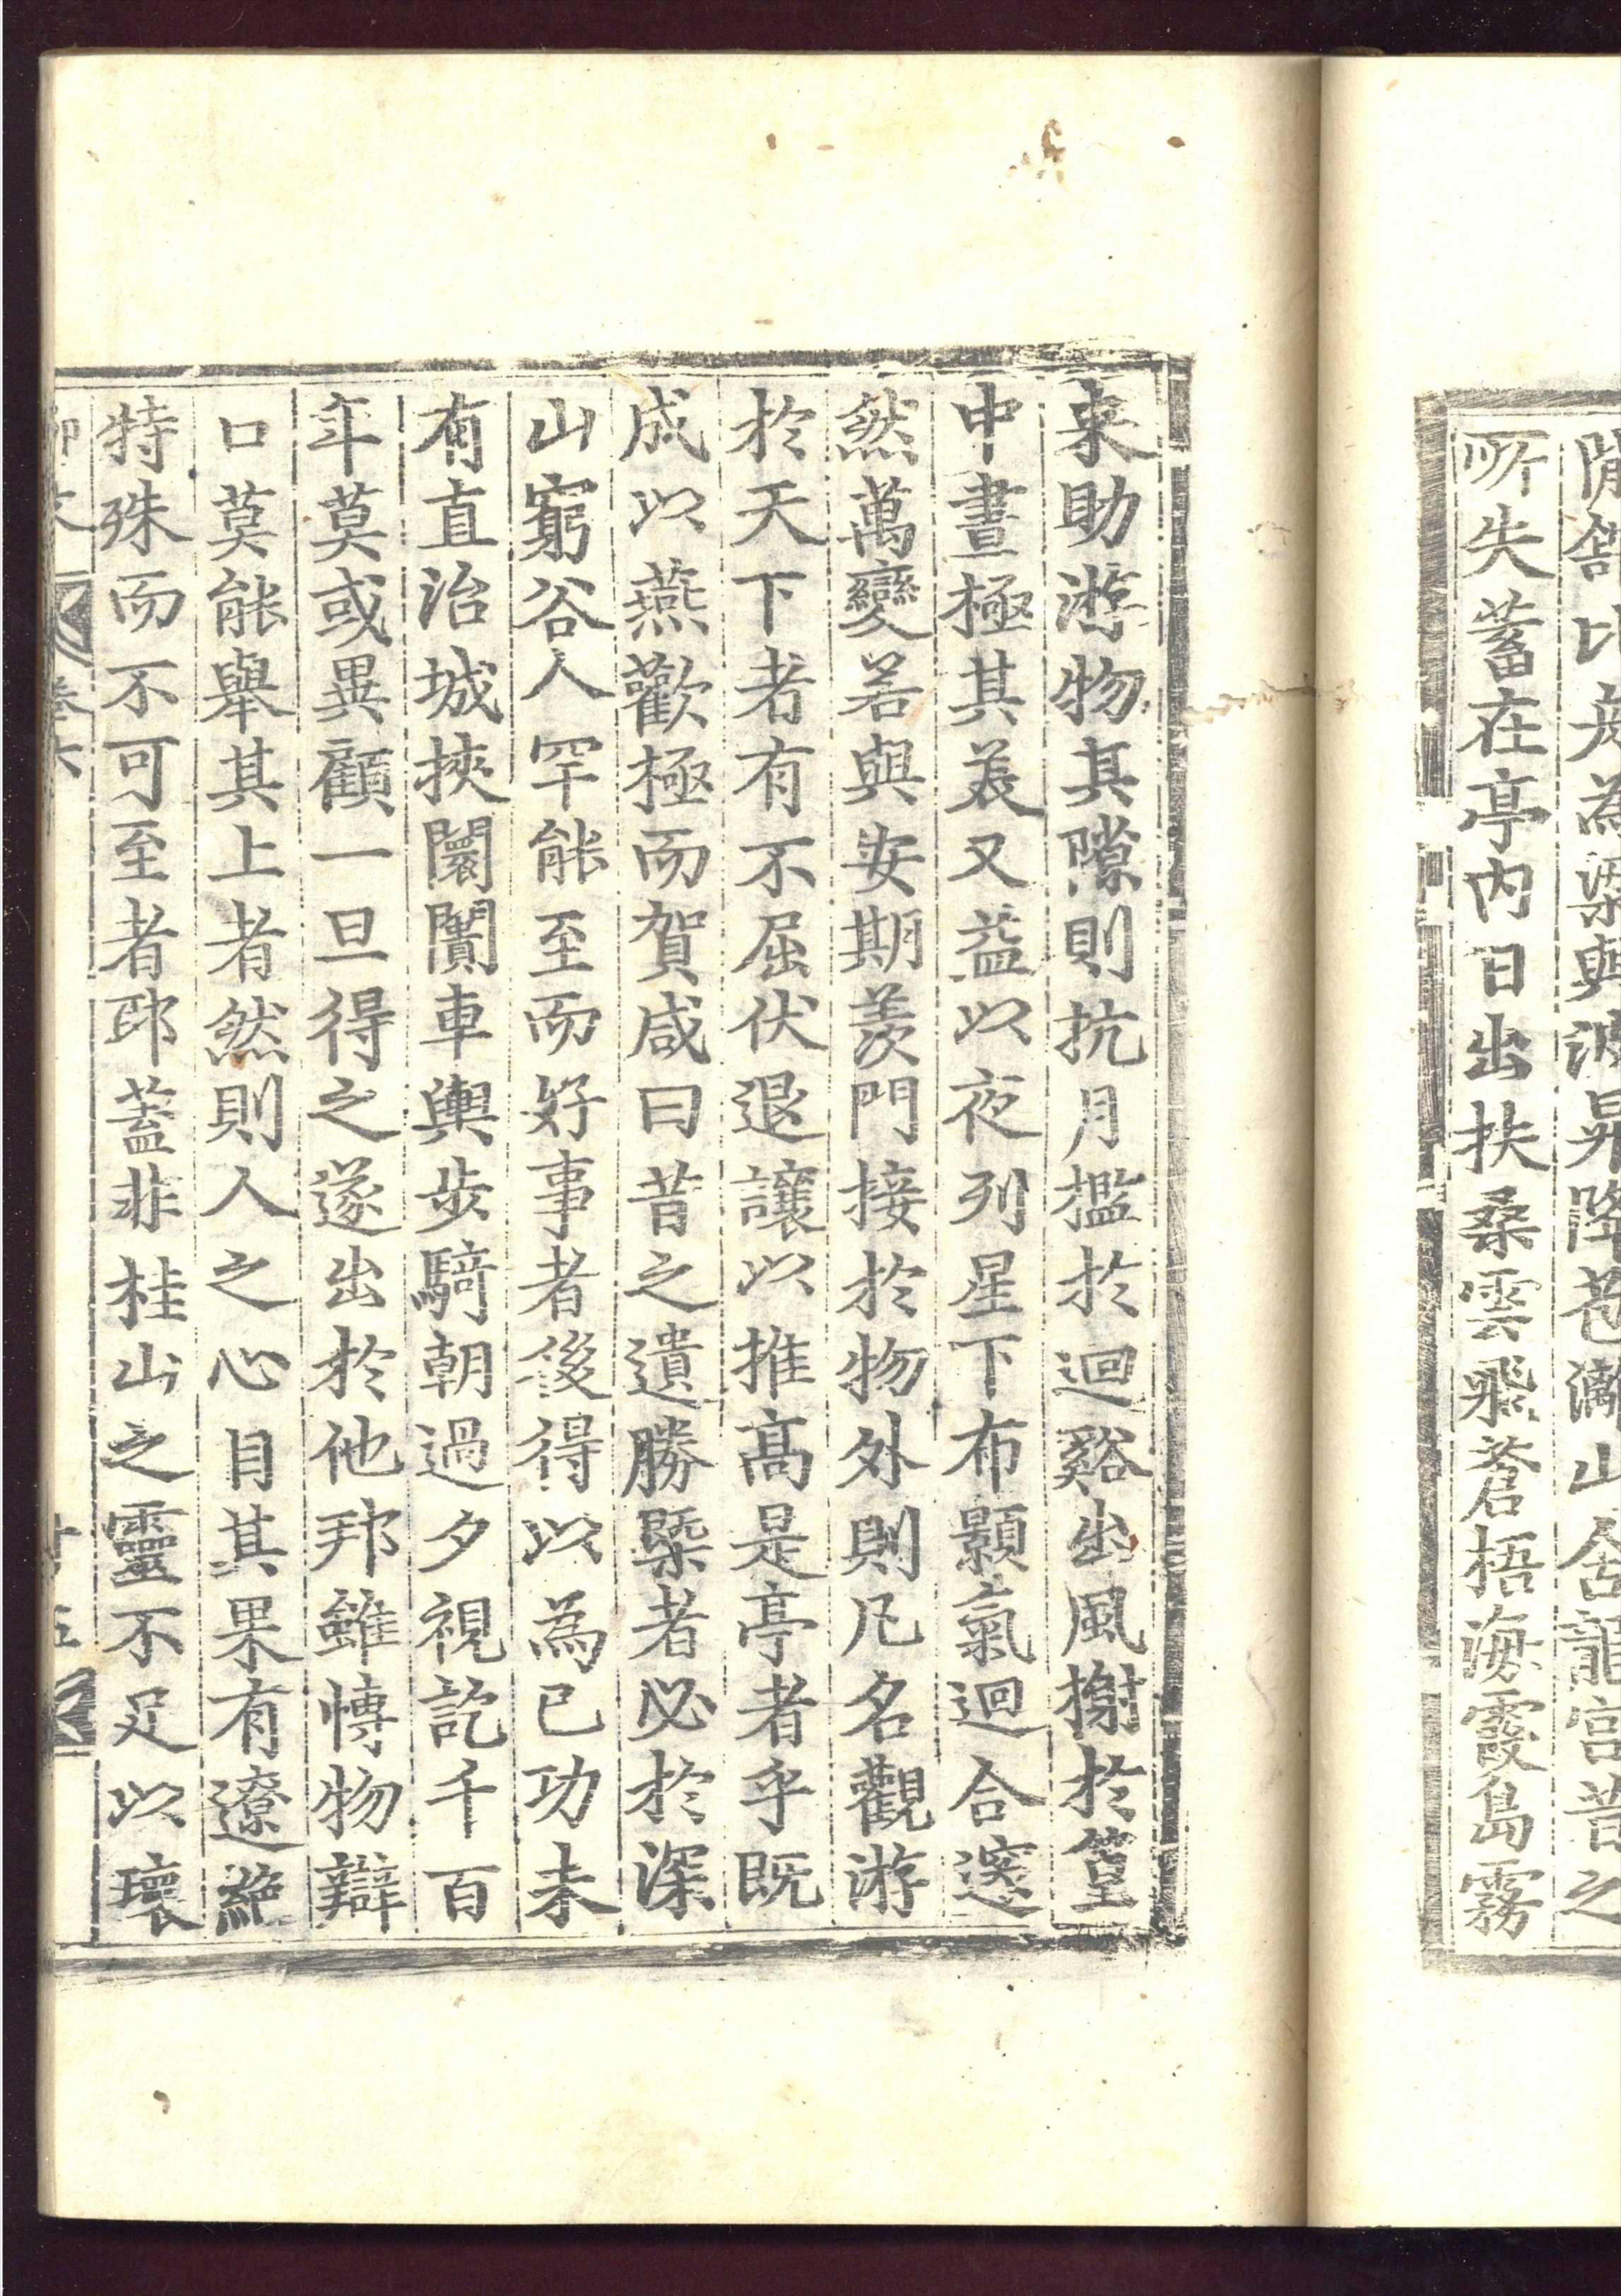 閒舘比舟為梁與波昇降苞灕山含龍宮昔之
所失蓄在亭内日出扶桑雲飛蒼梧海霞島霧
来助游物其隙則抗月檻於迴谿出風榭於篁
中晝極其美又益以夜列星下布顥氣迴合邃
然萬變若與安期羨門接於物外則凡名觀游
於天下者有不屈伏退讓以推高是亭者乎既
成以燕歡極而賀咸曰昔之遺勝槩者必於深
山窮谷人罕能至而好事者後得以為已功未
有直治城挾闤闠車輿步騎朝過夕視訖千百
年莫或異顧一旦得之遂出於他邦雖博物辯
口莫能舉其上者然則人之心目其果有遼絶
特殊而不可至者耶蓋非桂山之靈不足以瓌
柳文 卷六